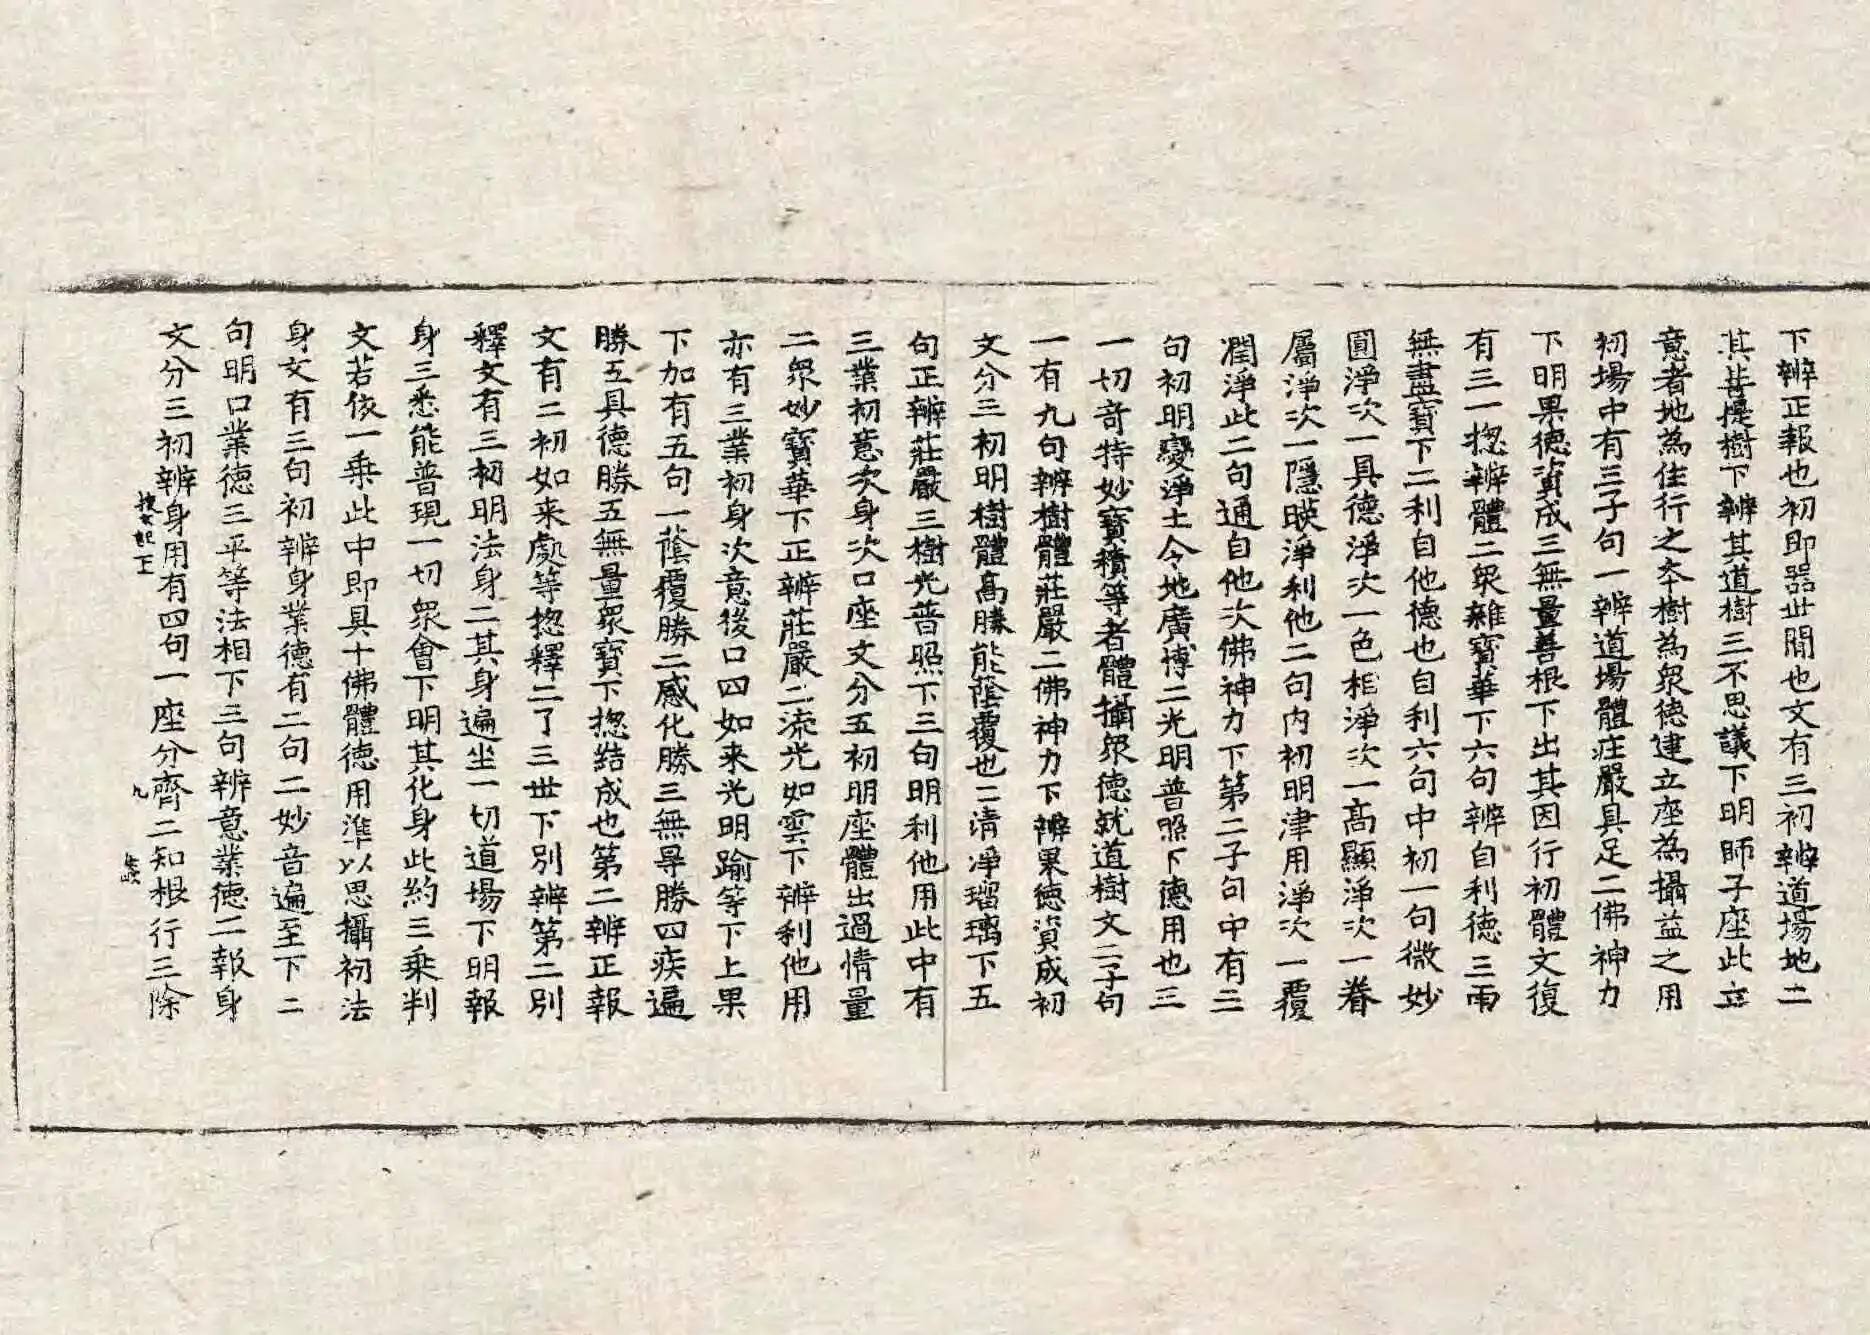 下辨正報也初即器世間也文有三初辨道場地二
其菩提樹下辨其道樹三不思議下明師子座此立
意者地為住行之本樹為衆德建立座為攝益之用
初場中有三子句一辨道場體莊嚴具足二佛神力
下明果德資成三無量善根下出其因行初體文復
有三一揔辨體二衆雜寶華下六句辨自利德三雨
無盡寶下二利自他德也自利六句中初一句微妙
圓淨次一具德淨次一色相淨次一高顯淨次一眷
屬淨次一隱暎淨利他二句内初明津用淨次一覆
潤淨此二句通自他次佛神力下第二子句中有三
句初明變淨土令地廣博二光明普照下德用也三
一切奇特妙寶積等者體攝衆德就道樹文二子句
一有九句辨樹體莊嚴二佛神力下辨果德資成初
文分三初明樹體高勝能蔭覆也二清淨瑠璃下五
句正辨莊嚴三樹光普照下三句明利他用此中有
三業初意次身次口座文分五初明座體出過情量
二衆妙寶華下正辨莊嚴二流光如雲下辨利他用
亦有三業初身次意後口四如来光明踰等下上果
下加有五句一蔭覆勝二感化勝三無㝵勝四疾遍
勝五具德勝五無量衆寶下揔結成也第二辨正報
文有二初如来處等揔釋二了三世下別辨第二別
釋文有三初明法身二其身遍坐一切道場下明報
身三悉能普現一切衆會下明其化身此約三乗判
文若依一乗此中即具十佛體德用準以思攝初法
身文有三句初辨身業德有二句二妙音遍至下二
句明口業德三平等法相下三句辨意業德二報身
文分三初辨身用有四句一座分齊二知根行三除
九